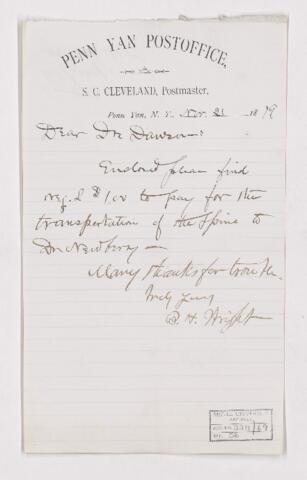 PENN YAN POSTOFFICE,
S. C. CLEVELAND, Postmaster,
Penn Yan, N. Y. Nov. 21 1879
Dear Dr Dawson:
Enclosed please find
reg. £ $1.00 to pay for the
transportation of the Spine to
Dr. Newberry —
Many thanks for trouble.
Truly yours
B. H. Wright